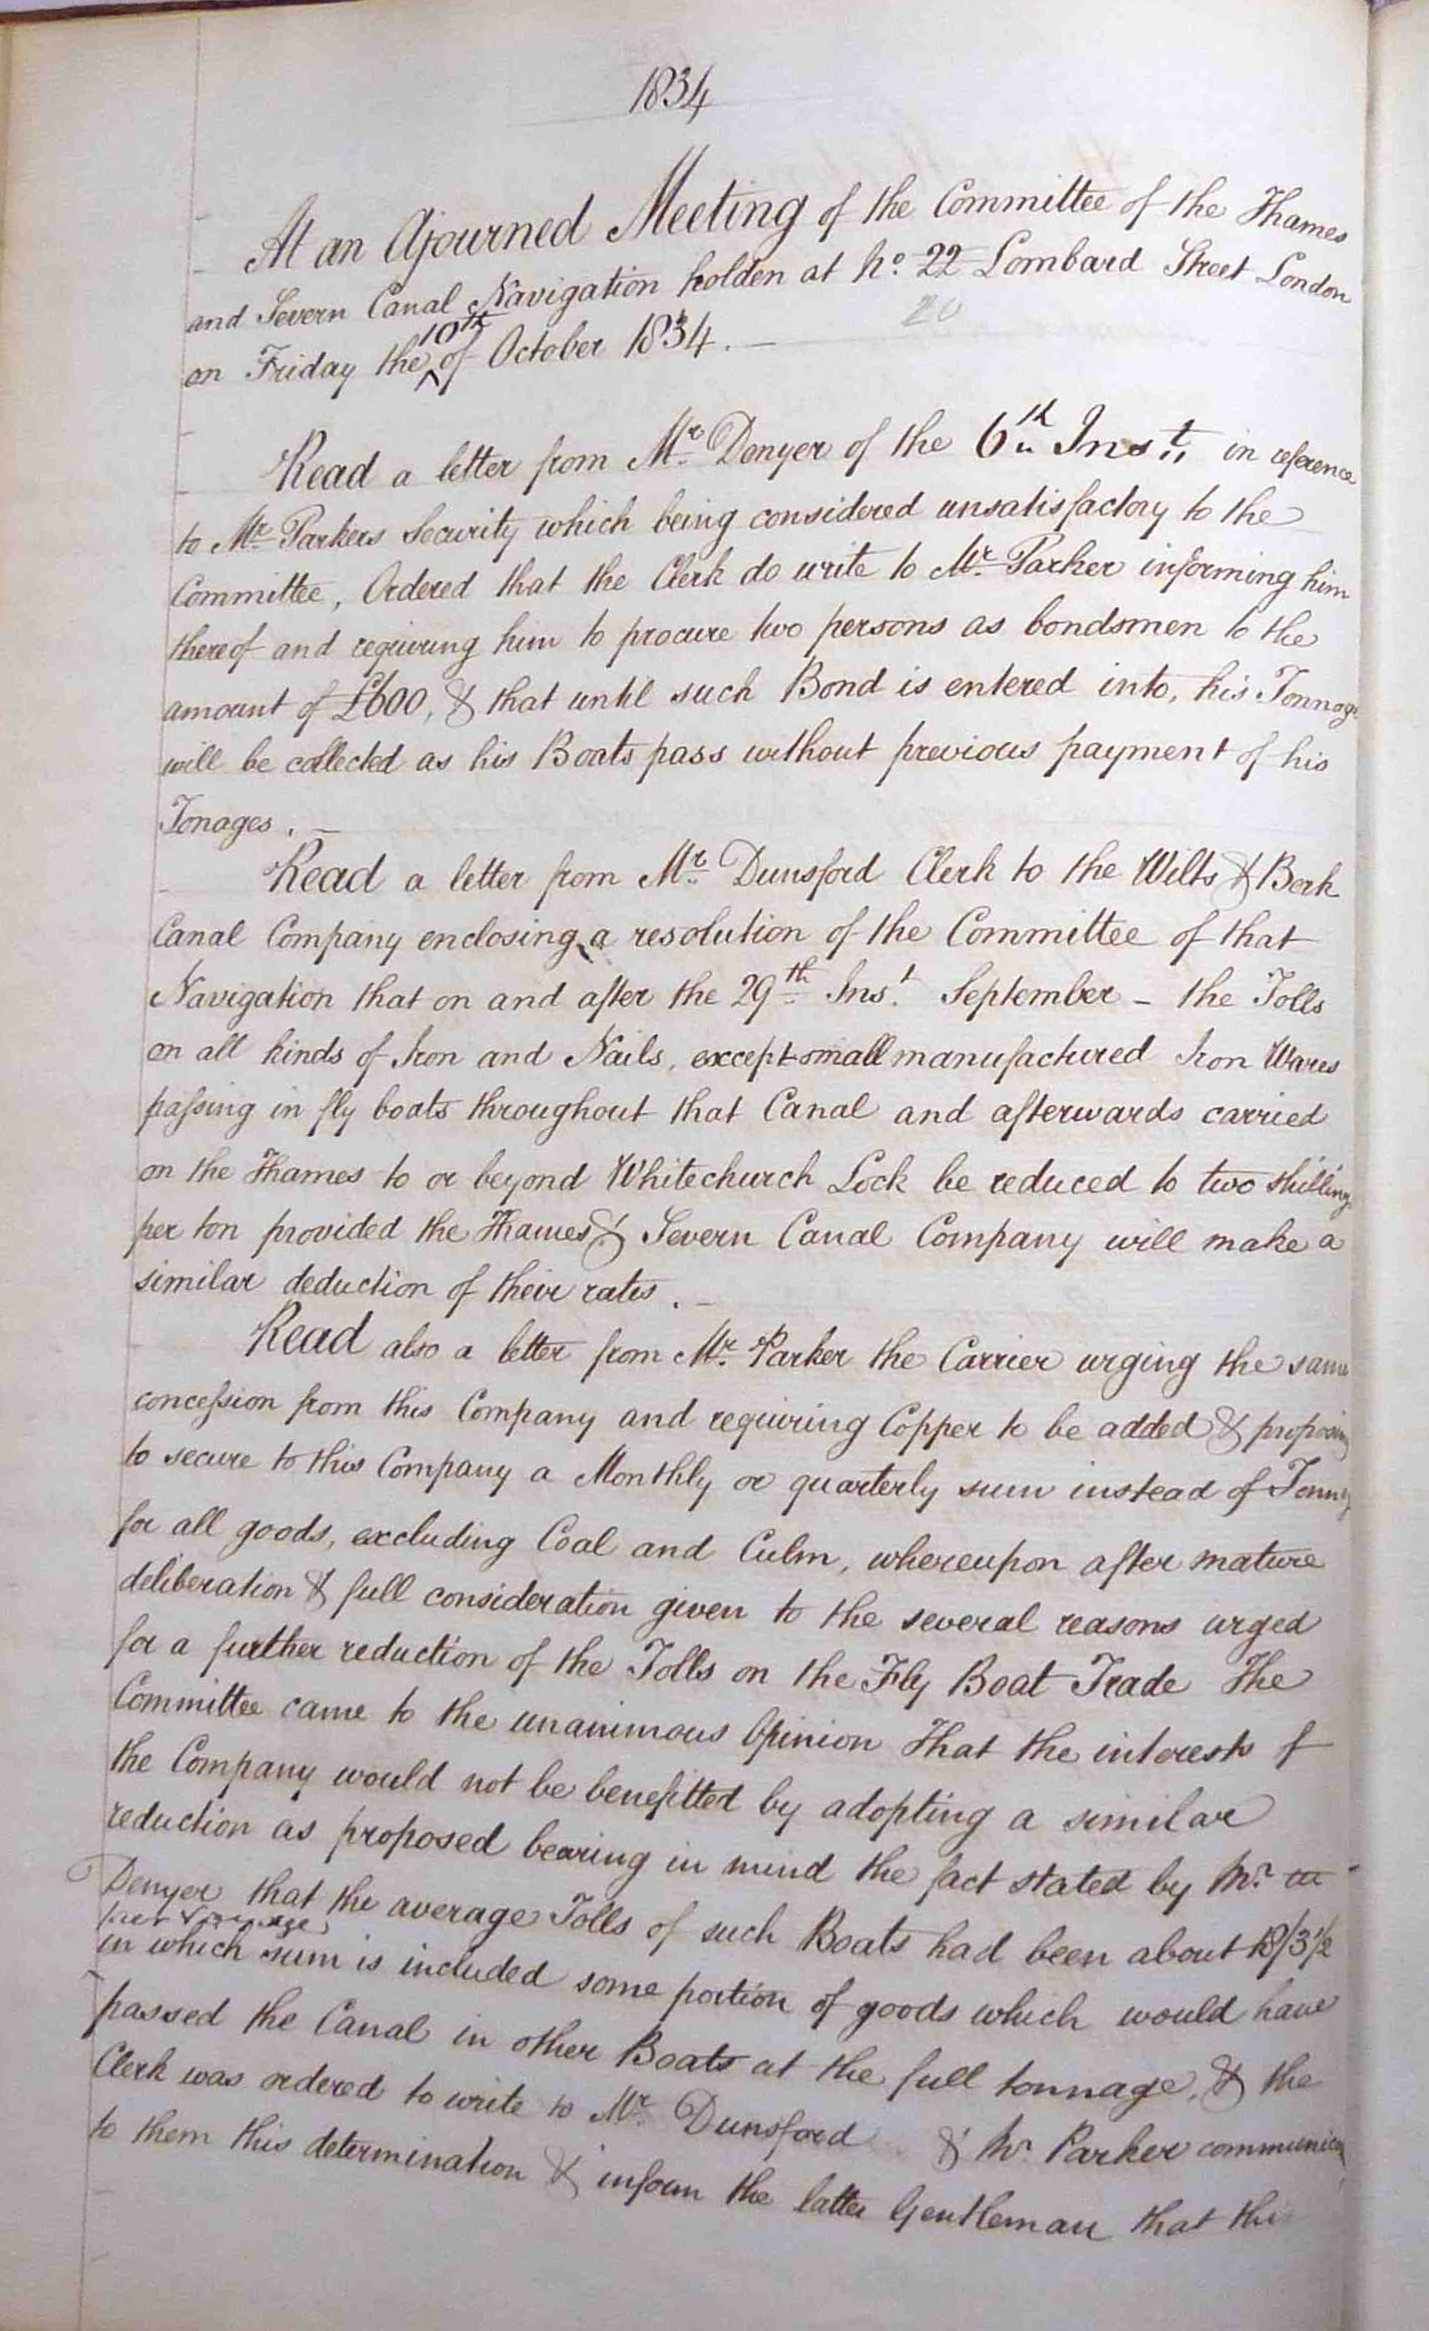 1834
At an Ajourned Meeting of the Committee of the Thames
and Severn Canal Navigation holden at No. 22 Lombard Street London
20
on Friday the 10th of October 1834. —
Read a letter from Mr. Denyer of the 6th Inst. in reference
to Mr. Parkers Security which being considered unsatisfactory to the
Committee, Ordered that the Clerk do write to Mr. Parker informing him
thereof and requiring him to procure two persons as bondsmen to the
amount of £600, & that until such Bond is entered into, his Tonnage
will be collected as his Boats pass without previous payment of his
Tonages. —
Read a letter from Mr. Dunsford Clerk to the Wilts & Berk
Canal Company enclosing a resolution of the Committee of that
Navigation that on and after the 29th Inst. September – the Tolls
on all kinds of Iron and Nails, except small manufactured Iron Wares
passing in fly boats throughout that Canal and afterwards carried
on the Thames to or beyond Whitechurch Lock be reduced to two shilling
per ton provided the Thames & Severn Canal Company will make a
similar deduction of their rates. —
Read also a letter from Mr. Parker the Carrier urging the same
concession from this Company and requiring Copper to be added & proposing
to secure to this Company a Monthly or quarterly sum instead of
for all goods, excluding Coal and Culm, whereupon after mature
deliberation & full consideration given to the several reasons urged
for a further reduction of the Tolls on the Fly Boat Trade The
Committee came to the unanimous Opinion That the interests of
the Company would not be benefitted by adopting a similar
reduction as proposed bearing in mind the fact stated by Mr.
Denyer that the average Tolls of such Boats had been about
per Voyage,
in which sum is included some portion of goods which would have
passed the Canal in other Boats at the full tonnage, & the
Clerk was ordered to write to Mr. Dunsford & Mr. Parker
to them this determination & inform the latter Gentleman that this